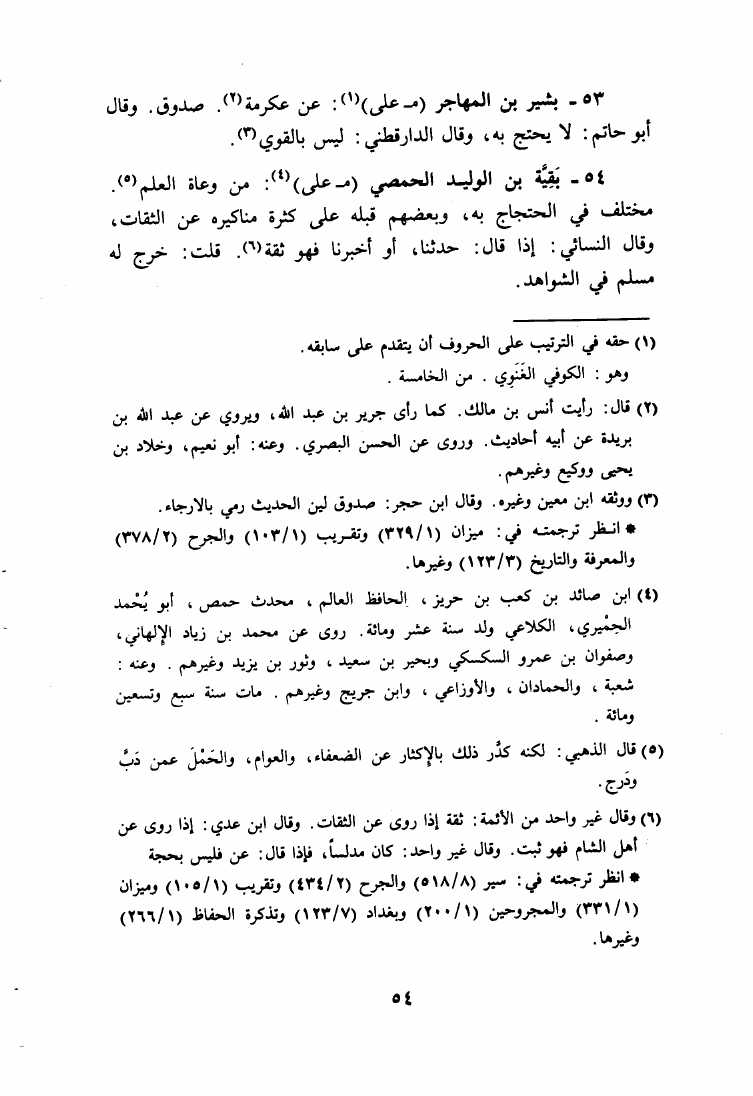 ٥٣ - بشير بن المهاجر (مـ على)(١): عن عكرمة(٢). صدوق. وقال
أبو حاتم: لا يحتج به، وقال الدارقطني: ليس بالقوي(٣).
٥٤ - بَقِيَّة بن الوليـد الحمصي (مـ على)(٤): من وعاة العلم(٥).
مختلف في الحتجاج به، وبعضهم قبله على كثرة مناكيره عن الثقات،
وقال النسائي: إذا قال: حدثنا، أو أخبرنا فهو ثقة(٦). قلت: خرج له
مسلم في الشواهد.
(١) حقه في الترتيب على الحروف أن يتقدم على سابقه.
وهو: الكوفي الغَنَوِي. من الخامسة.
(٢) قال: رأيت أنس بن مالك. كما رأى جرير بن عبد الله، ويروي عن عبد الله بن
بريدة عن أبيه أحاديث. وروى عن الحسن البصري. وعنه: أبو نعيم، وخلاد بن
يحيى ووكيع وغيرهم.
(٣) ووثقه ابن معين وغيره. وقال ابن حجر: صدوق لين الحديث رمي بالارجاء.
* انـظر ترجمتـه في: ميزان (٣٢٩/١) وتقـريب (١٠٣/١) والجرح (٣٧٨/٢)
والمعرفة والتاريخ (١٢٣/٣) وغيرها.
(٤) ابن صائد بن كعب بن حريز، الحافظ العالم، محدث حمص، أبو يُحْمد
الحِمْيري، الكلاعي ولد سنة عشر ومائة. روى عن محمد بن زياد الإلهاني،
وصفوان بن عمرو السكسكي وبحير بن سعيد، وثور بن يزيد وغيرهم. وعنه:
شعبة، والحمادان، والأوزاعي، وابن جريج وغيرهم. مات سنة سبع وتسعين
ومائة.
(٥) قال الذهبي: لكنه كدَّر ذلك بالإكثار عن الضعفاء، والعوام، والحَمْلَ عمن دَبَّ
ودَرج.
(٦) وقال غير واحد من الأئمة: ثقة إذا روى عن الثقات. وقال ابن عدي: إذا روى عن
أهل الشام فهو ثبت. وقال غير واحد: كان مدلساً، فإذا قال: عن فليس بحجة
* انظر ترجمته في: سير (٥١٨/٨) والجرح (٤٣٤/٢) وتقريب (١٠٥/١) وميزان
(٣٣١/١) والمجروحين (٢٠٠/١) وبغداد (١٢٣/٧) وتذكرة الحفاظ (٢٦٦/١)
وغيرها.
٥٤